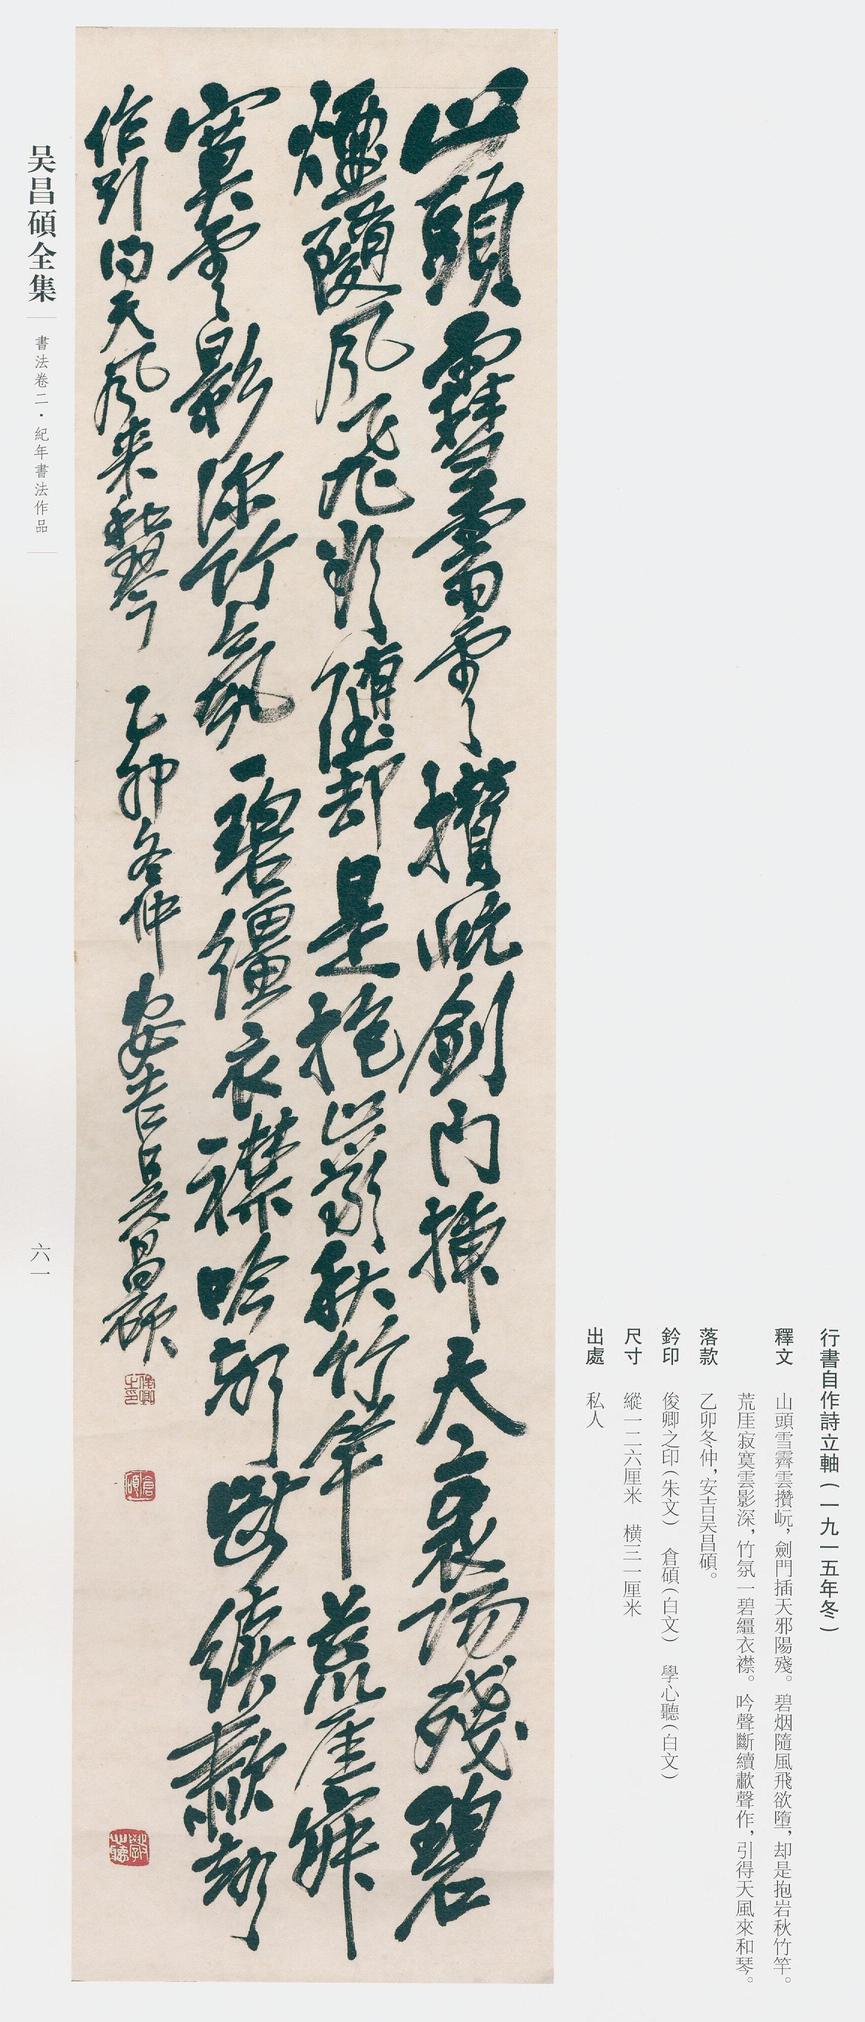 山頭雪霽雲攢岏劍門插天衺陽殘碧
煙隨風飛欲墮却是抱巖秋竹竿荒厓寂
寞雲影深竹氛一碧繮衣襟吟聲斷續歗聲
作引得天風来和琴 乙卯冬仲 安吉吳昌碩
俊卿之印
倉碩
學心聽
行書自作詩立軸(一九一五年冬)
釋文 山頭雪霽雲攢岏,劍門插天邪陽殘。碧烟隨風飛欲墮,却是抱岩秋竹竿。
荒厓寂寞雲影深,竹氛一碧繮衣襟。吟聲斷續歗聲作,引得天風來和琴。
落款 乙卯冬仲,安吉吴昌碩。
鈐印 俊卿之印(朱文) 倉碩(白文) 學心聽(白文)
尺寸 縱一二六厘米 橫三一厘米
出處 私人
吴昌碩全集
書法卷二·紀年書法作品
六一